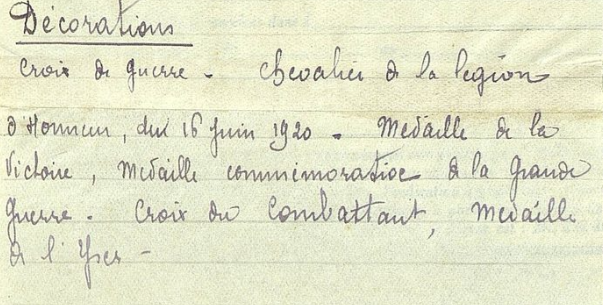 Décorations
Croix de guerre - Chevalier de la légion
d'Honneur, du 16 Juin 1920 - Médaille de la
Victoire, Médaille commémorative de la Grande
Guerre - Croix du Combattant, Médaille
de l'Yser -